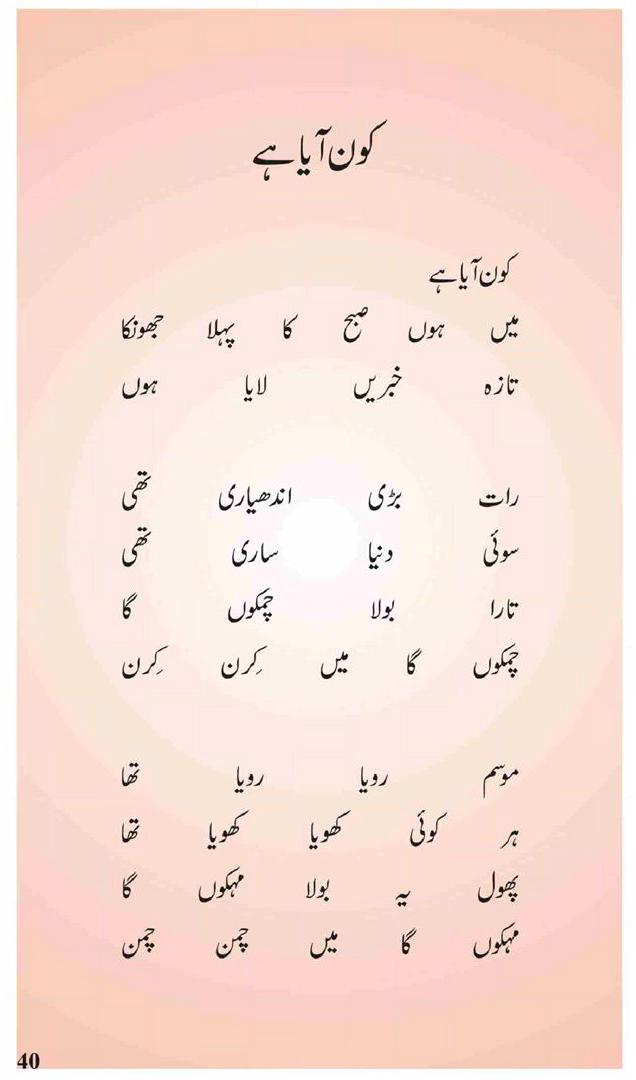 کون آیا ہے
کون آیا ہے
میں ہوں صبح کا پہلا جھونکا
تازہ خبریں لایا ہوں
رات بڑی اندھیاری تھی
سوئی دنیا ساری تھی
تارا بولا چمکوں گا
چمکوں گا میں کِرن کِرن
موسم رویا رویا تھا
ہر کوئی کھویا کھویا تھا
پھول یہ بولا مہکوں گا
مہکوں گا میں چمن چمن
40